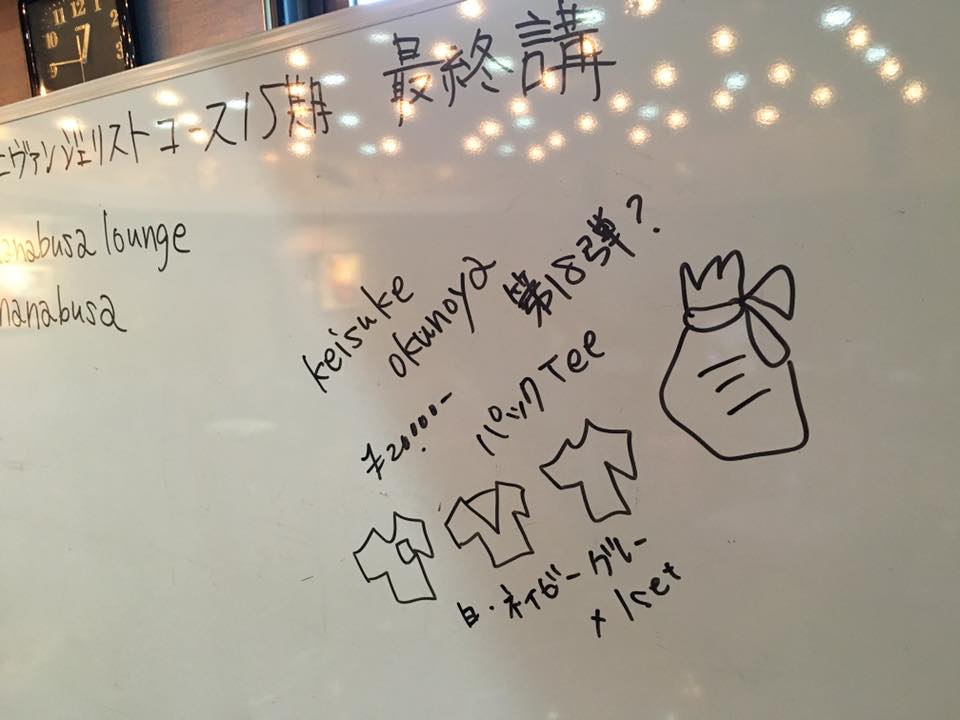 エヴァンジェリストコース15期 最終講
anabusa lounge
nanabusa
keisuke
okunoya
第18弾?
¥20,000-
パックTee
白・ネイビーグレー
× 1set
11 12 1
10 2
9 3